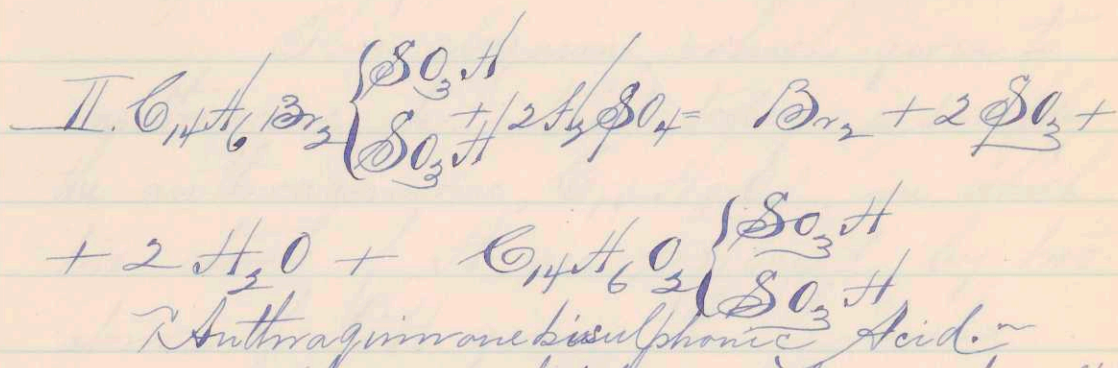 II. C₁₄H₆Br₂ { SO₃H SO₃H + 2H₂SO₄ = Br₂ + 2SO₃ +
+ 2H₂O + C₁₄H₆O₂ { SO₃H SO₃H
~Anthraquinonebisulphonic Acid.~